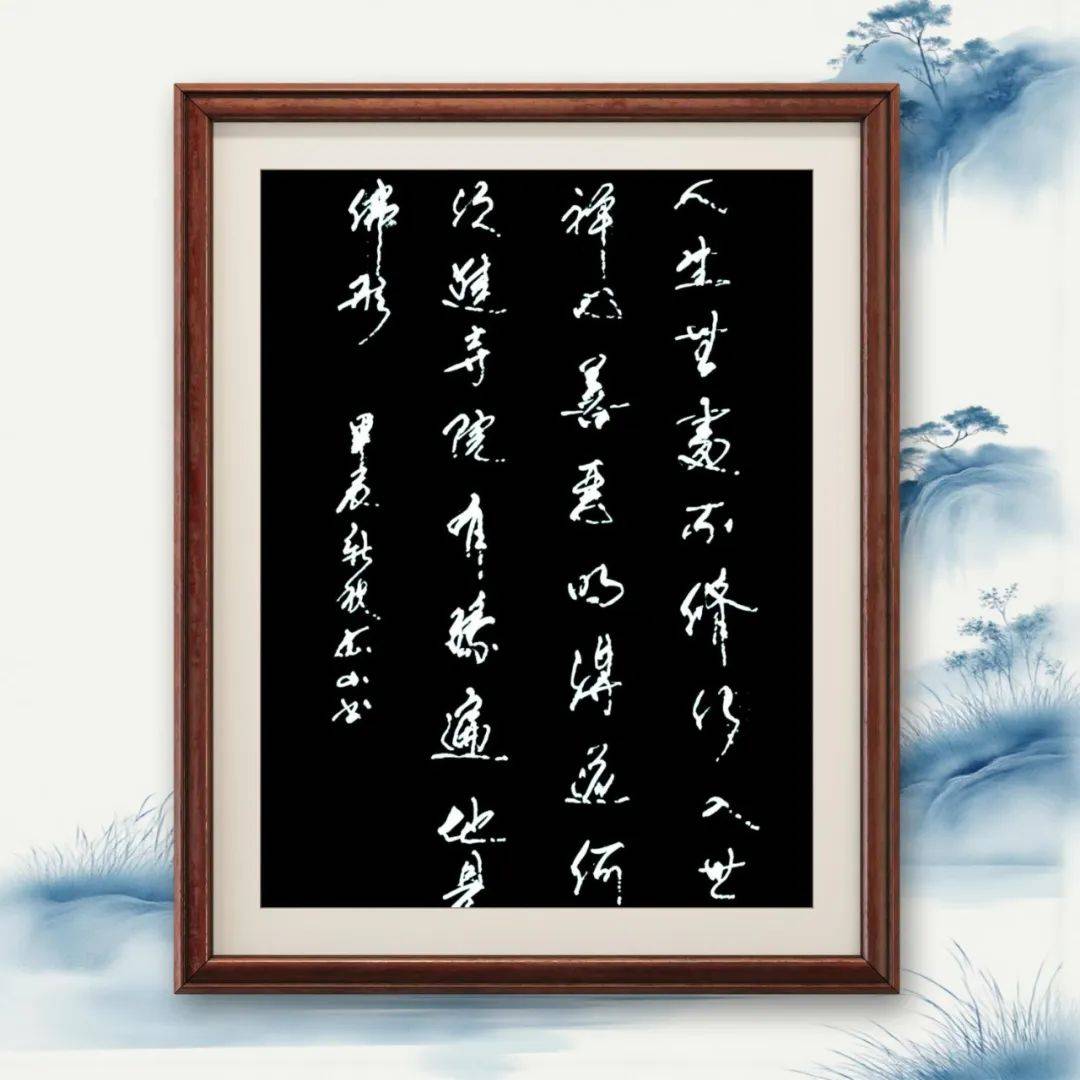 人生無處不修行入世
禪心善惡明得道何
須進寺院有緣遍地是
佛形
甲辰新秋书